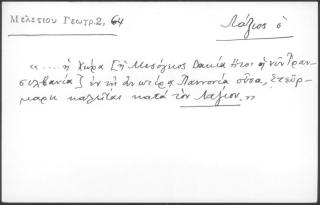 Μελετίου Γεωγρ. 2, 64
Λάζιος ὁ
«....ἡ Χώρα [ἡ Μεσόγειος Δακία ἤτοι ἡ νῦν Τραν-
συλβανία] ἐν τῇ ἀνωτέρᾳ Παννονίᾳ οὖσα, Στεϋρ-
μαρκ καλεῖται κατὰ τὸν Λάζιον.»